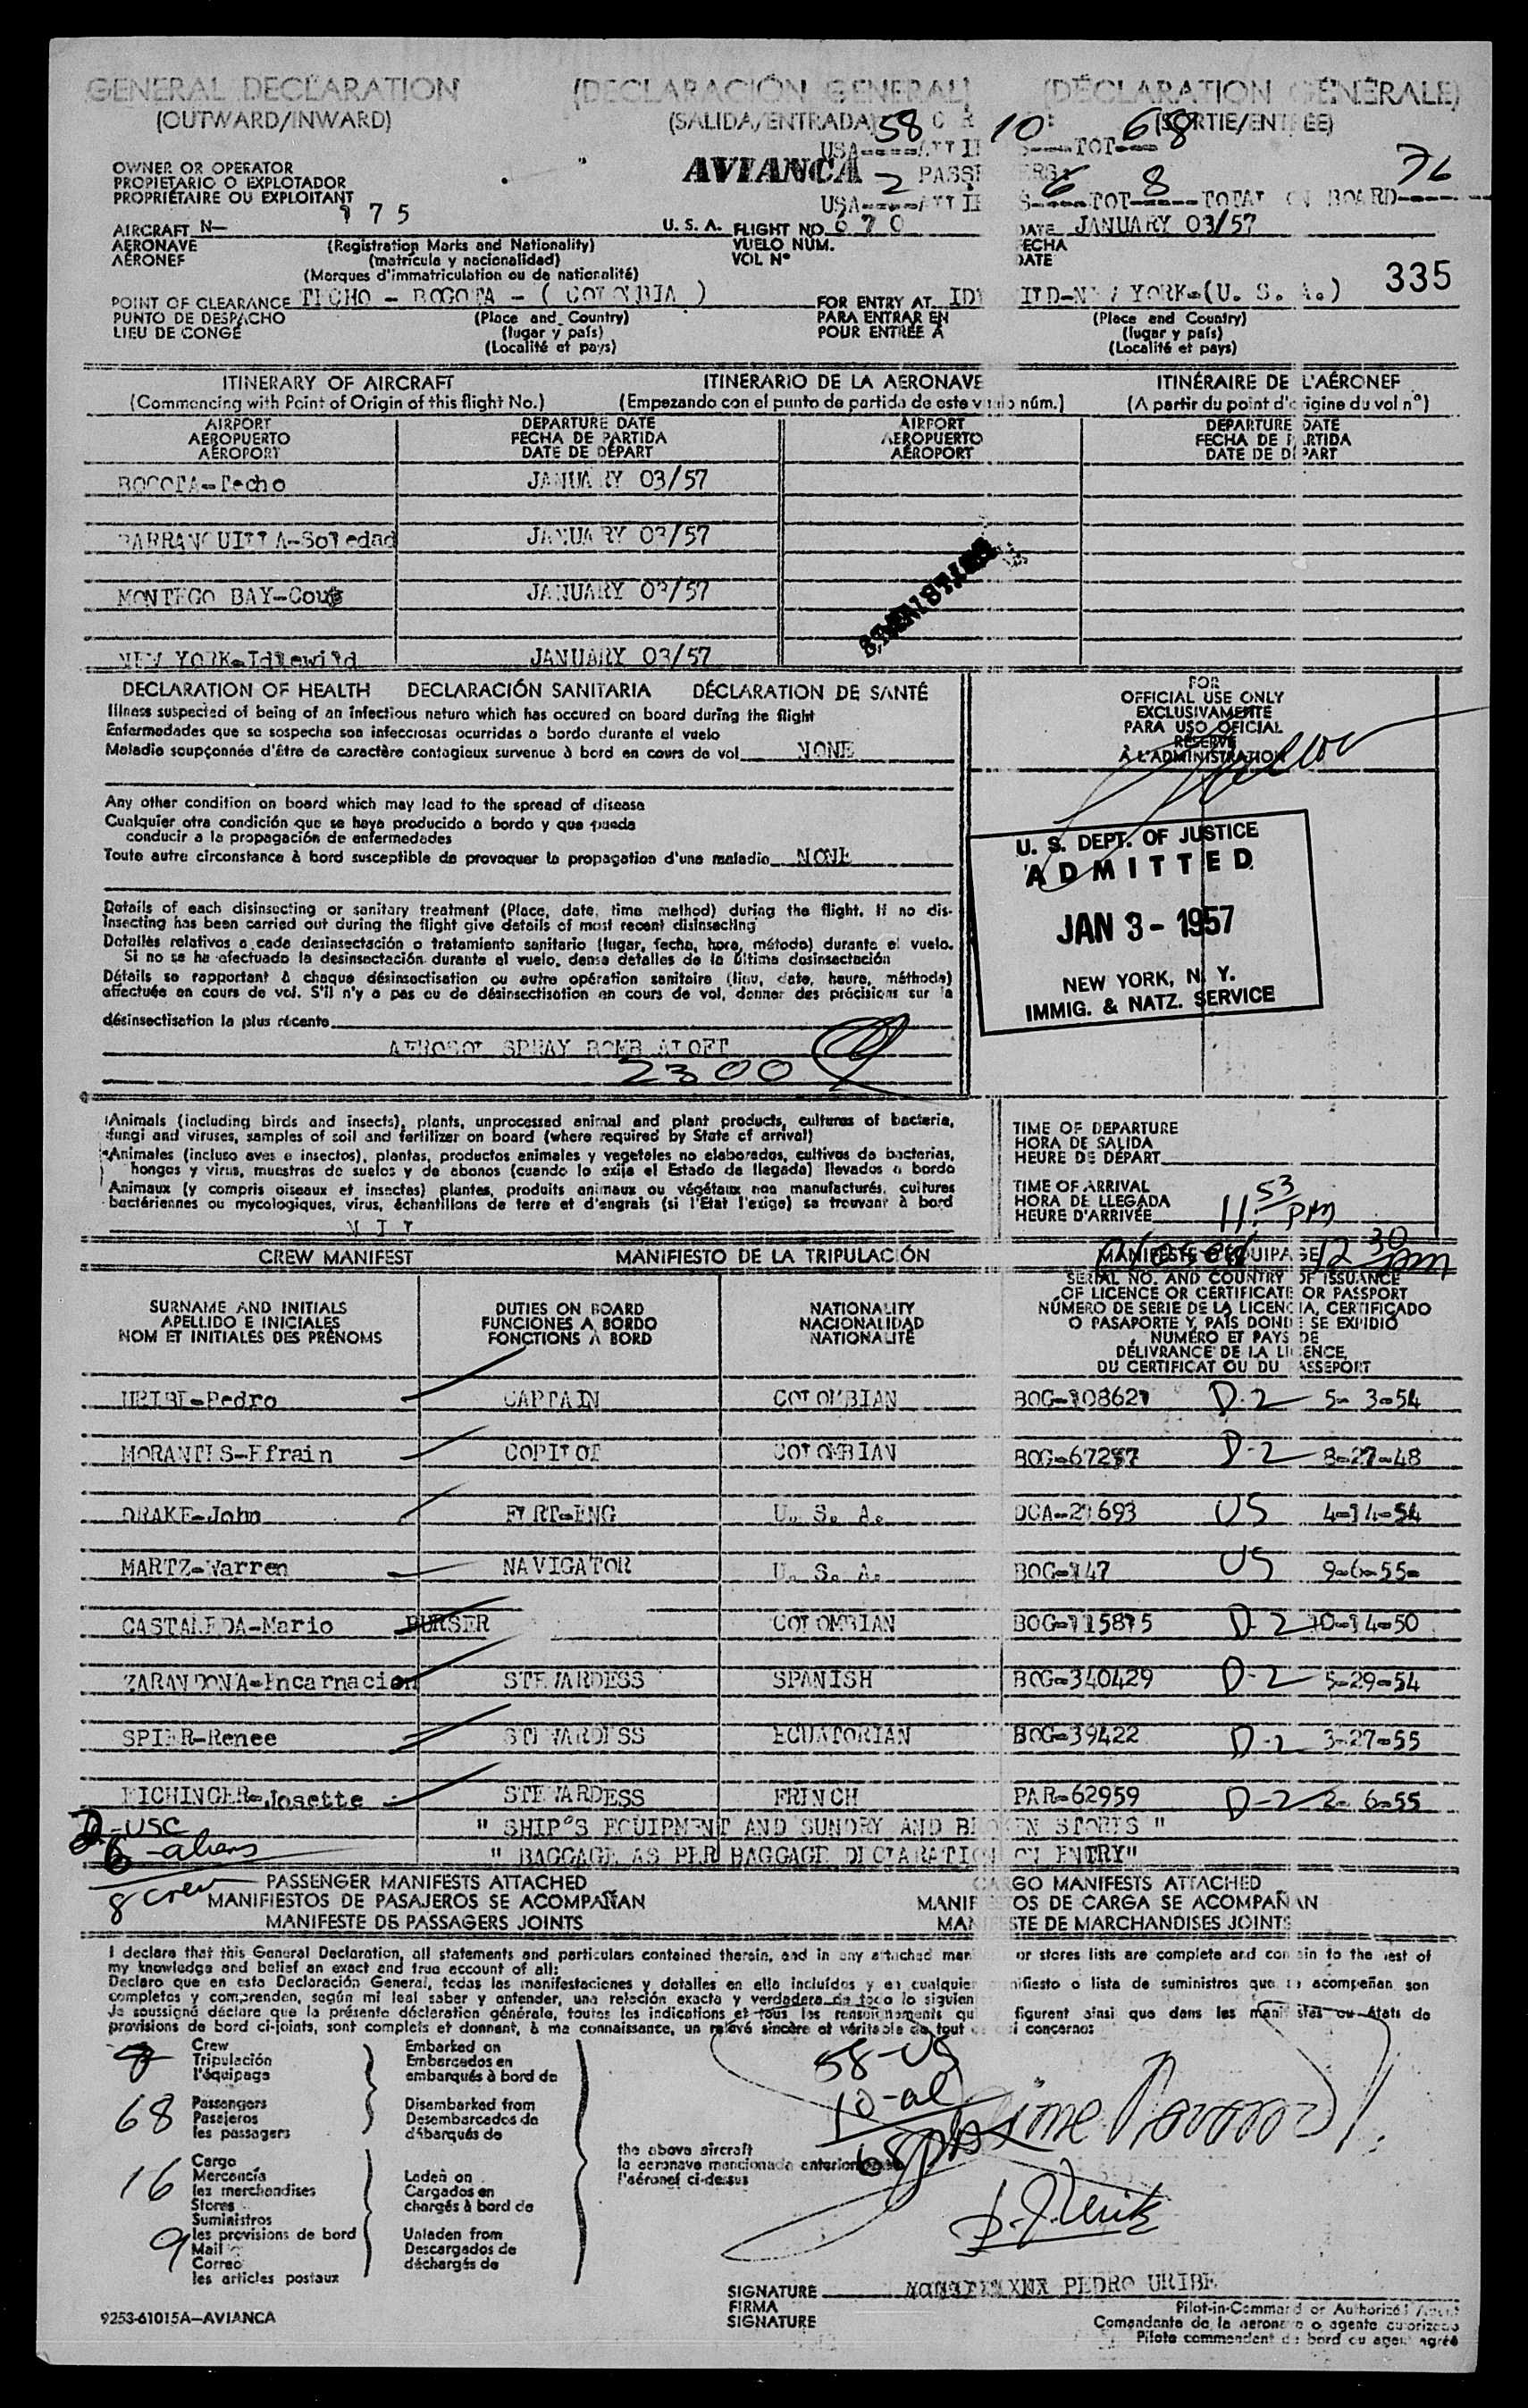 GENERAL DECLARATION (DECLARACIÓN GENERAL) (DÉCLARATION GÉNÉRALE)
(OUTWARD/INWARD) (SALIDA/ENTRADA) (SORTIE/ENTRÉE)
58 10 68
USA TOT
OWNER OR OPERATOR
PROPIETARIO O EXPLOTADOR
PROPRIÉTAIRE OU EXPLOITANT
AVIANCA
2 6 8 76
USA TOT TOTAL ON BOARD
AIRCRAFT N- 175 U. S. A. FLIGHT NO. 670 DATE JANUARY 03/57
AERONAVE (Registration Marks and Nationality) VUELO NÚM. FECHA
AÉRONEF (matrícula y nacionalidad) VOL Nº DATE
(Marques d'immatriculation ou de nationalité)
335
POINT OF CLEARANCE TECHO - BOGOTA - ( COLOMBIA ) FOR ENTRY AT YORK-(U. S. A.)
PUNTO DE DESPACHO (Place and Country) PARA ENTRAR EN (Place and Country)
LIEU DE CONGÉ (lugar y país) POUR ENTRÉE À (lugar y país)
(Localité et pays) (Localité et pays)
ITINERARY OF AIRCRAFT ITINERARIO DE LA AERONAVE ITINÉRAIRE DE L'AÉRONEF
(Commencing with Point of Origin of this flight No.) (Empezando con el punto de partida de este vuelo núm.) (A partir du point d'origine du vol nº)
AIRPORT DEPARTURE DATE AIRPORT DEPARTURE DATE
AEROPUERTO FECHA DE PARTIDA AEROPUERTO FECHA DE PARTIDA
AÉROPORT DATE DE DÉPART AÉROPORT DATE DE DÉPART
BOGOTA-Techo JANUARY 03/57
BARRANQUILLA-Soledad JANUARY 03/57
MONTEGO BAY-Cous JANUARY 03/57
NEW YORK-Idlewild JANUARY 03/57
DECLARATION OF HEALTH DECLARACIÓN SANITARIA DÉCLARATION DE SANTÉ
Illness suspected of being of an infectious nature which has occured on board during the flight
Enfermedades que se sospecha son infecciosas ocurridas a bordo durante el vuelo
Maladie soupçonnée d'être de caractère contagieux survenue à bord en cours de vol NONE
FOR
OFFICIAL USE ONLY
EXCLUSIVAMENTE
PARA USO OFICIAL
RESERVÉ
À L'ADMINISTRATION
Any other condition on board which may lead to the spread of disease
Cualquier otra condición que se haya producido a bordo y que pueda
conducir a la propagación de enfermedades
Toute autre circonstance à bord susceptible de provoquer la propagation d'une maladie NONE
U. S. DEPT. OF JUSTICE
ADMITTED
JAN 3 - 1957
NEW YORK, N. Y.
IMMIG. & NATZ. SERVICE
Details of each disinsecting or sanitary treatment (Place, date, time method) during the flight. If no dis-
insecting has been carried out during the flight give details of most recent disinsecting
Detalles relativos a cada desinsectación o tratamiento sanitario (lugar, fecha, hora, método) durante el vuelo.
Si no se ha efectuado la desinsectación durante el vuelo, dense detalles de la última desinsectación
Détails se rapportant à chaque désinsectisation ou autre opération sanitaire (lieu, date, heure, méthode)
effectuée en cours de vol. S'il n'y a pas eu de désinsectisation en cours de vol, donner des précisions sur la
désinsectisation la plus récente
AEROSOL SPRAY BOMB ALOFT
2300
Animals (including birds and insects), plants, unprocessed animal and plant products, cultures of bacteria,
fungi and viruses, samples of soil and fertilizer on board (where required by State of arrival)
Animales (incluso aves e insectos), plantas, productos animales y vegetales no elaborados, cultivos de bacterias,
hongos y virus, muestras de suelos y de abonos (cuando lo exija el Estado de llegada) llevados a bordo
Animaux (y compris oiseaux et insectes) plantes, produits animaux ou végétaux non manufacturés, cultures
bactériennes ou mycologiques, virus, échantillons de terre et d'engrais (si l'Etat l'exige) se trouvant à bord
N I L
TIME OF DEPARTURE
HORA DE SALIDA
HEURE DE DÉPART
TIME OF ARRIVAL
HORA DE LLEGADA
HEURE D'ARRIVÉE 11:53 PM
12 30 am
CREW MANIFEST MANIFIESTO DE LA TRIPULACIÓN MANIFESTE EQUIPAGE
SURNAME AND INITIALS DUTIES ON BOARD NATIONALITY
APELLIDO E INICIALES FUNCIONES A BORDO NACIONALIDAD
NOM ET INITIALES DES PRÉNOMS FONCTIONS À BORD NATIONALITÉ
SERIAL NO. AND COUNTRY OF ISSUANCE
OF LICENCE OR CERTIFICATE OR PASSPORT
NÚMERO DE SERIE DE LA LICENCIA, CERTIFICADO
O PASAPORTE Y PAÍS DONDE SE EXPIDIÓ
NUMÉRO ET PAYS DE
DÉLIVRANCE DE LA LICENCE,
DU CERTIFICAT OU DU PASSEPORT
URIBE-Pedro CAPTAIN COLOMBIAN BOG-108621 D-2 5- 3-54
MORANTES-Efrain COPILOT COLOMBIAN BOG-67287 D-2 8-27-48
DRAKE-John FLRT-ENG U. S. A. DCA-21693 US 4-14-54
MARTZ-Warren NAVIGATOR U. S. A. BOG-147 US 9-6-55-
CASTAÑEDA-Mario PURSER COLOMBIAN BOG-115815 D-2 10-14-50
ZARANDONA-Encarnacion STEWARDESS SPANISH BOG-340429 D-2 5-29-54
SPIER-Renee STEWARDESS ECUATORIAN BOG-39422 D-2 3-27-55
EICHINGER-Josette STEWARDESS FRENCH PAR-62959 D-2 2- 6-55
2-USC " SHIP'S EQUIPMENT AND SUNDRY AND BROKEN STORES "
6-aliens " BAGGAGE AS PER BAGGAGE DECLARATION ON ENTRY"
8 crew
PASSENGER MANIFESTS ATTACHED CARGO MANIFESTS ATTACHED
MANIFIESTOS DE PASAJEROS SE ACOMPAÑAN MANIFIESTOS DE CARGA SE ACOMPAÑAN
MANIFESTE DE PASSAGERS JOINTS MANIFESTE DE MARCHANDISES JOINTS
I declare that this General Declaration, all statements and particulars contained therein, and in any attached or stores lists are complete and contain to the best of
my knowledge and belief an exact and true account of all:
Declaro que en esta Declaración General, todas las manifestaciones y detalles en ella incluídos y en cualquier manifiesto o lista de suministros que acompañan son
completos y comprenden, según mi leal saber y entender, una relación exacta y verdadera de todo lo siguien
Je soussigné déclare que la présente déclaration générale, toutes les indications et tous les renseignements qui figurent ainsi que dans les manifestes ou états de
provisions de bord ci-joints, sont complets et donnent, à ma connaissance, un relevé sincère et véritable de tout ce qui concerne:
8 Crew Embarked on
Tripulación Embarcados en
l'équipage embarqués à bord de
68 Passengers Disembarked from
Pasajeros Desembarcados de
les passagers débarqués de
58-US
10-al
68
the above aircraft
la aeronave mencionada
l'aéronef ci-dessus
16 Cargo
Mercancía Laden on
les merchandises Cargados en
Stores chargés à bord de
Suministros
9 les provisions de bord Unladen from
Mail Descargados de
Correo déchargés de
les articles postaux
SIGNATURE PEDRO URIBE
FIRMA
SIGNATURE
Pilot-in-Command or Authorized Agent
Comandante de la aeronave o agente autorizado
Pilote commandant de bord ou agent agréé
9253-61015A—AVIANCA